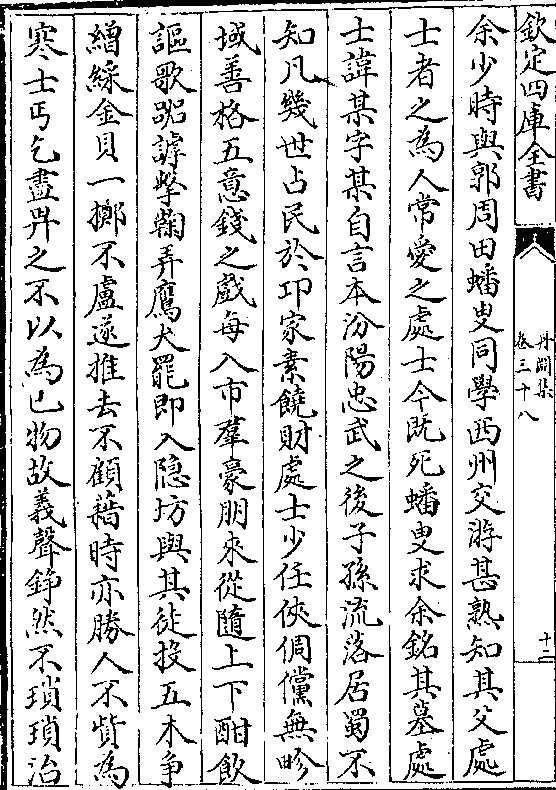 欽定四庫全書
丹淵集
卷三十八
十二
余少時與郭周田蟠叟同學西州交游甚熟知其父處
士者之為人常愛之處士今既死蟠叟求余銘其墓處
士諱某字某自言本汾陽忠武之後子孫流落居蜀不
知凡幾世占民於邛家素饒財處士少任俠倜儻無畛
域善格五意錢之戲每入市羣豪朋來從隨上下酣飲
謳歌跑謼擊鞠弄鷹犬罷即入隱坊與其徒投五木争
繒綵金貝一擲不盧遂推去不顧藉時亦勝人不貲為
寒士丐乞盡畀之不以為已物故義聲錚然不瑣瑣治